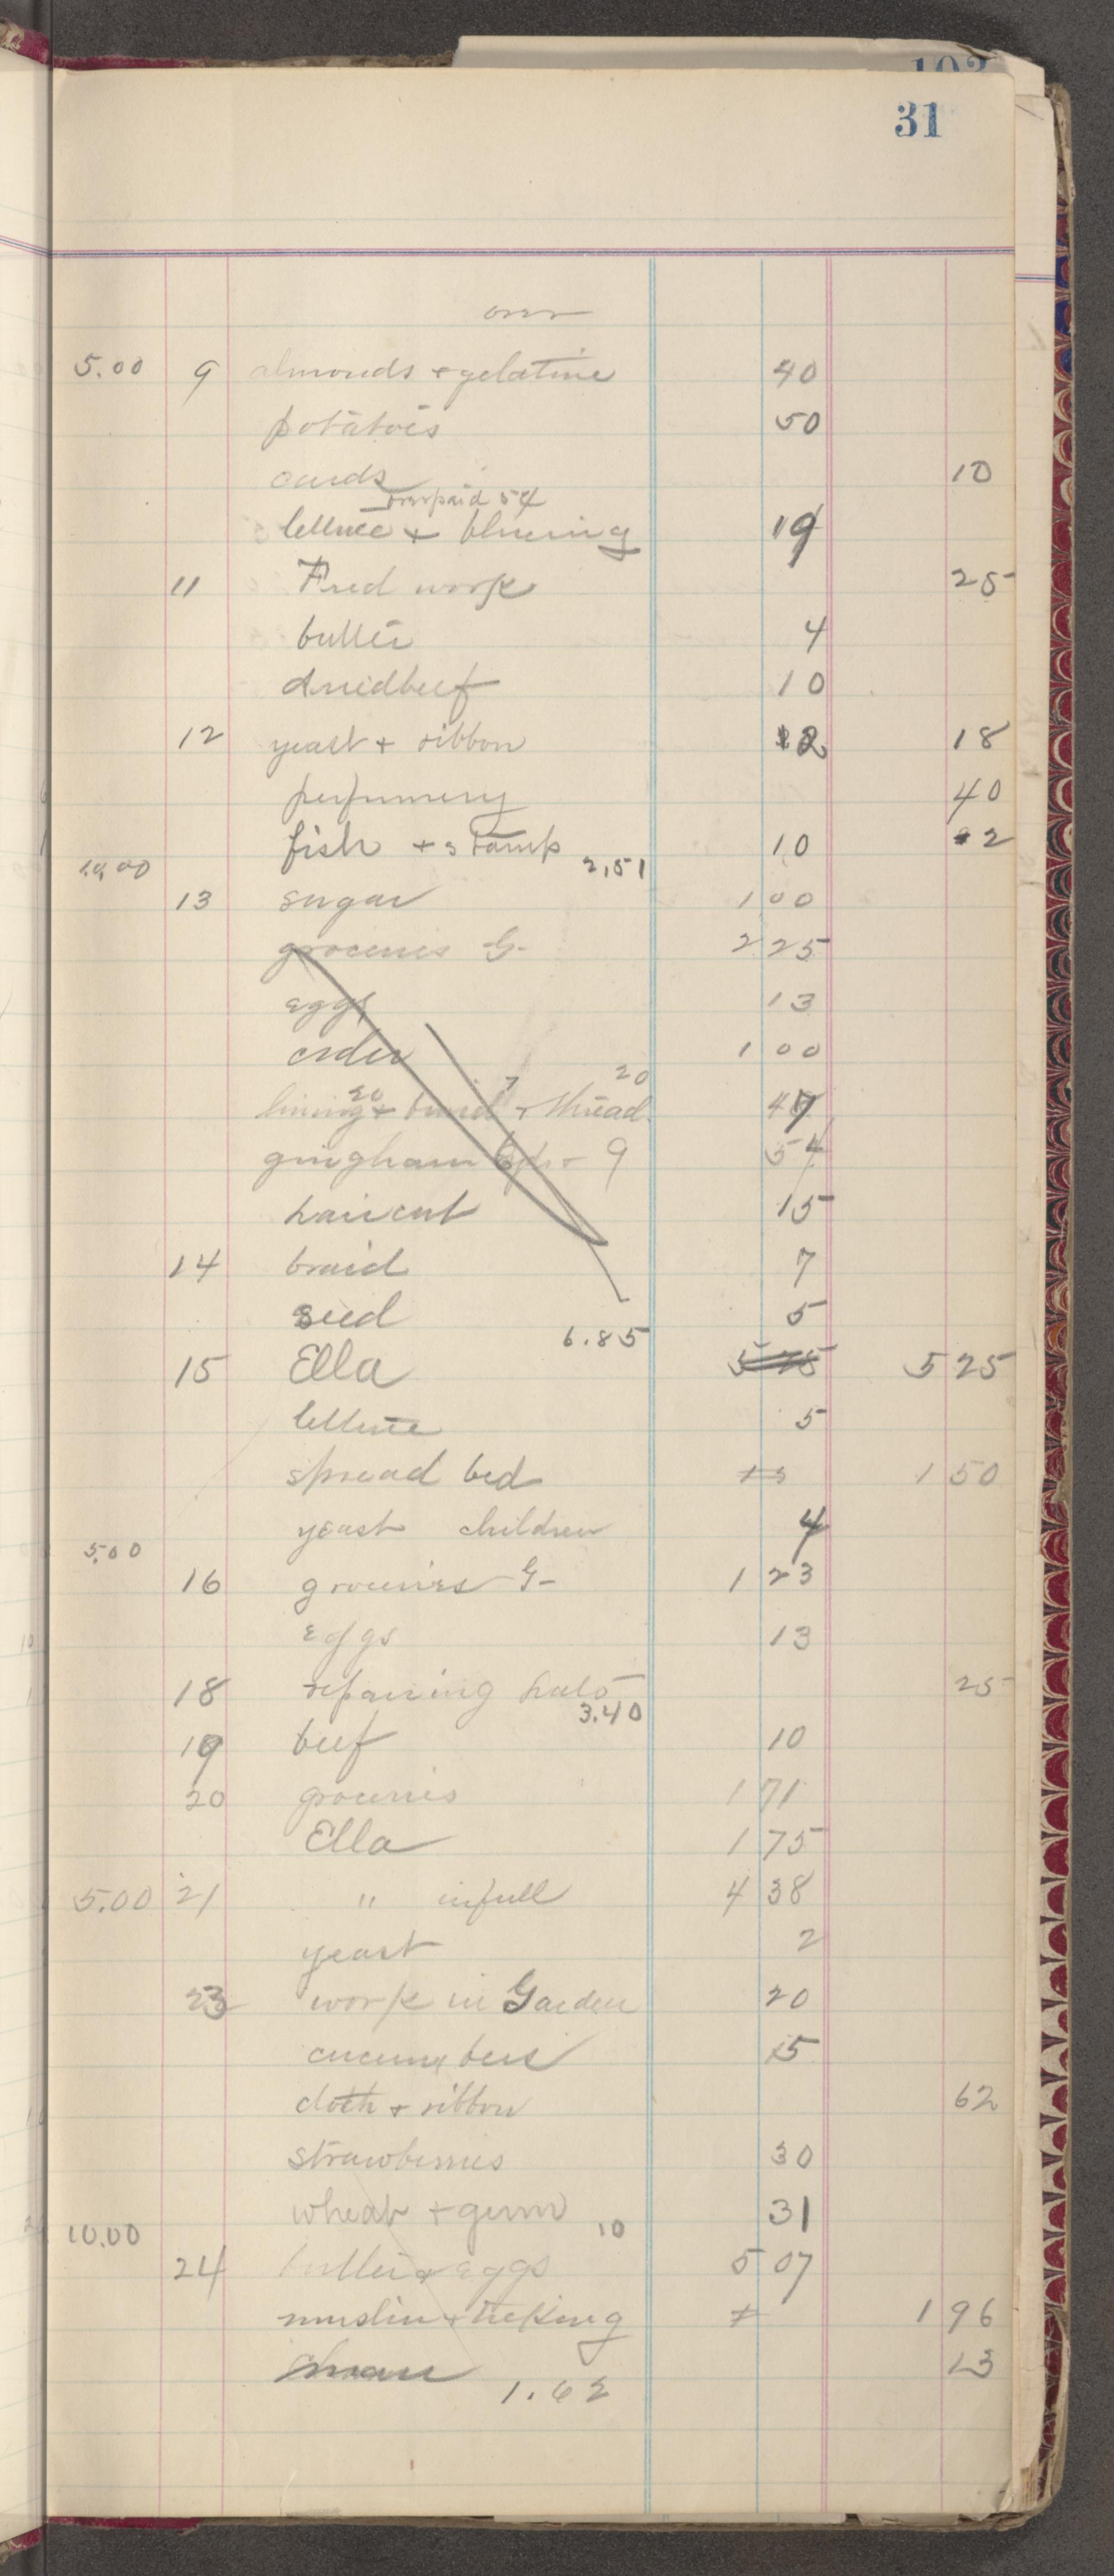 31
over
5.00 9 almonds + gelatine 40
potatoes 50
cards 10
overpaid 5¢
lettuce + blueing 19
11 Fred work 25
butter 4
driedbeef 10
12 yeast + ribbon 12 18
perfumery 40
fish + stamp 10 2
10.00 2.51
13 sugar 1 00
groceries G- 2 25
eggs 13
order 1 00
20 7 20
lining + braid + thread 47
gingham 6 9 54
haircut 15
14 braid 7
seed 5
6.85
15 Ella 5 25 5 25
lettuce 5
spread bed 15 1 50
yeast children 4
5.00
16 groceries G- 1 23
eggs 13
18 repairing hats 25
3.40
19 beef 10
20 groceries 1 71
Ella 1 75
5.00 21 " in full 4 38
yeast 2
23 work in Garden 20
cucumbers 15
cloth + ribbon 62
strawberries 30
wheat + germ 31
10.00 10
24 butter + eggs 5 07
muslin + ticking 1 96
13
1.62